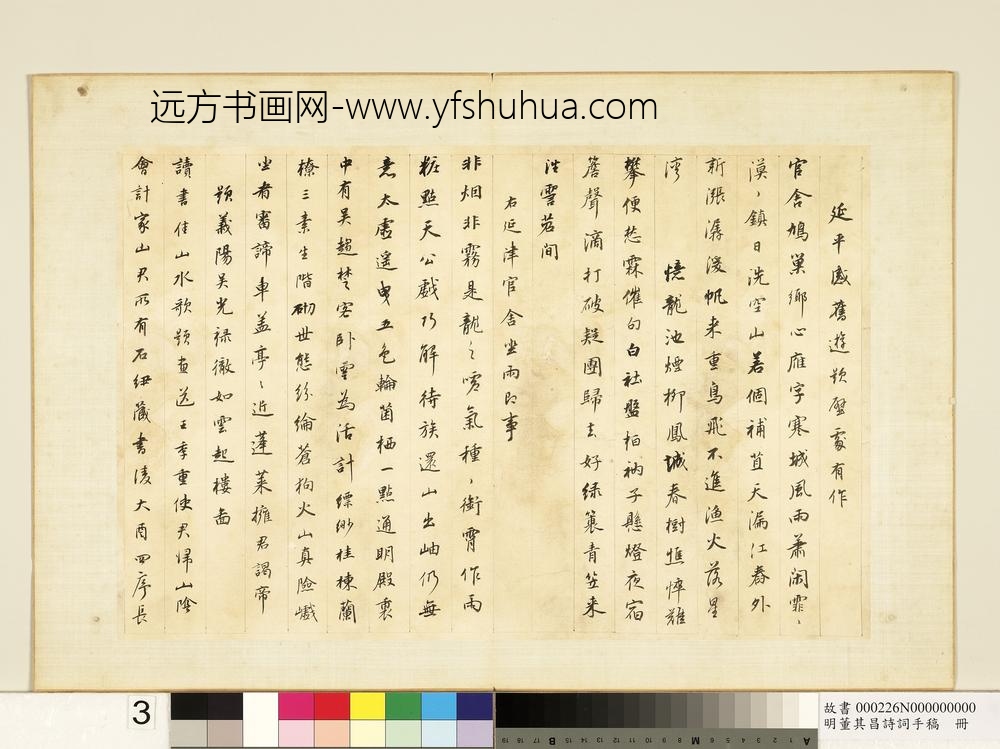 远方书画网-www.yfshuhua.com
延平感舊遊題壁處有作
官舍鳩巢鄉心雁字寒城風雨蕭閑霏〻
漠〻鎮日洗空山若個補苴天漏江春外
新漲潺湲帆來重鳥飛不進漁火落星
灣 憶龍池煙柳鳳城春樹憔悴難
攀便愁霖催句白社盤桓衲子懸燈夜宿
簷聲滴打破疑團歸去好綠蓑青笠来
往雪苕間
右延津官舍坐雨即事
非烟非霧是龍之噓氣種〻銜霄作雨
粧點天公戲巧解待族還山出岫仍無
意太虛遙曳五色輪菌栖一點通明殿裏
中有吳趙楚客卧雪為活計縹緲桂棟蘭
橑三素生階砌世態紛綸蒼狗火山真險巇
坐者審諦車盖亭〻近蓬萊擁君謁帝
題義陽吳光禄徹如雲起樓圖
讀書佳山水歌題畫送王季重使君歸山陰
會計家山君所有石紐蔵書凌大酉四序長
3
B
M
A
故書 000226N000000000
明董其昌詩詞手稿 冊